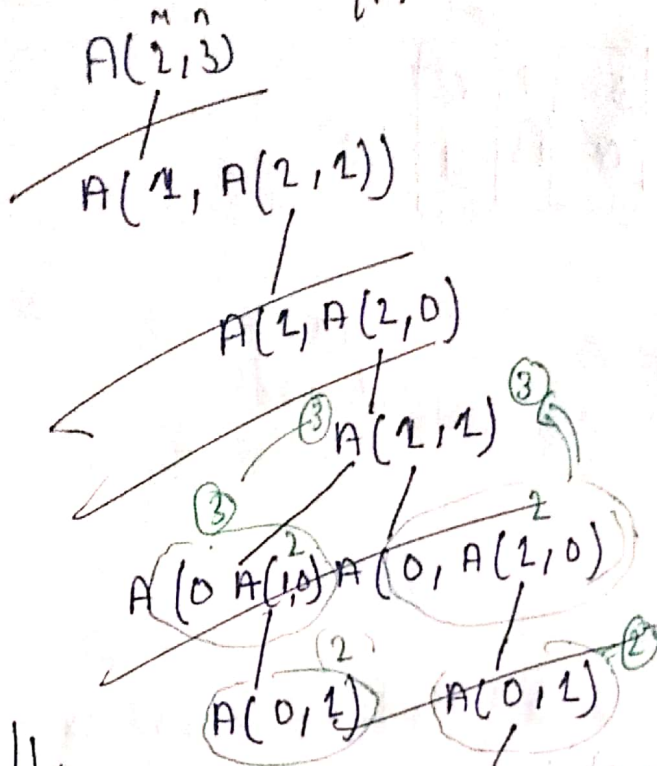 m n
A(2,3)
A(1, A(2,2))
A(1, A(2,0)
3 A(1,1) 3
3 2 2
A(0 A(1,0) A(0, A(1,0)
2 2
A(0,1) A(0,1)